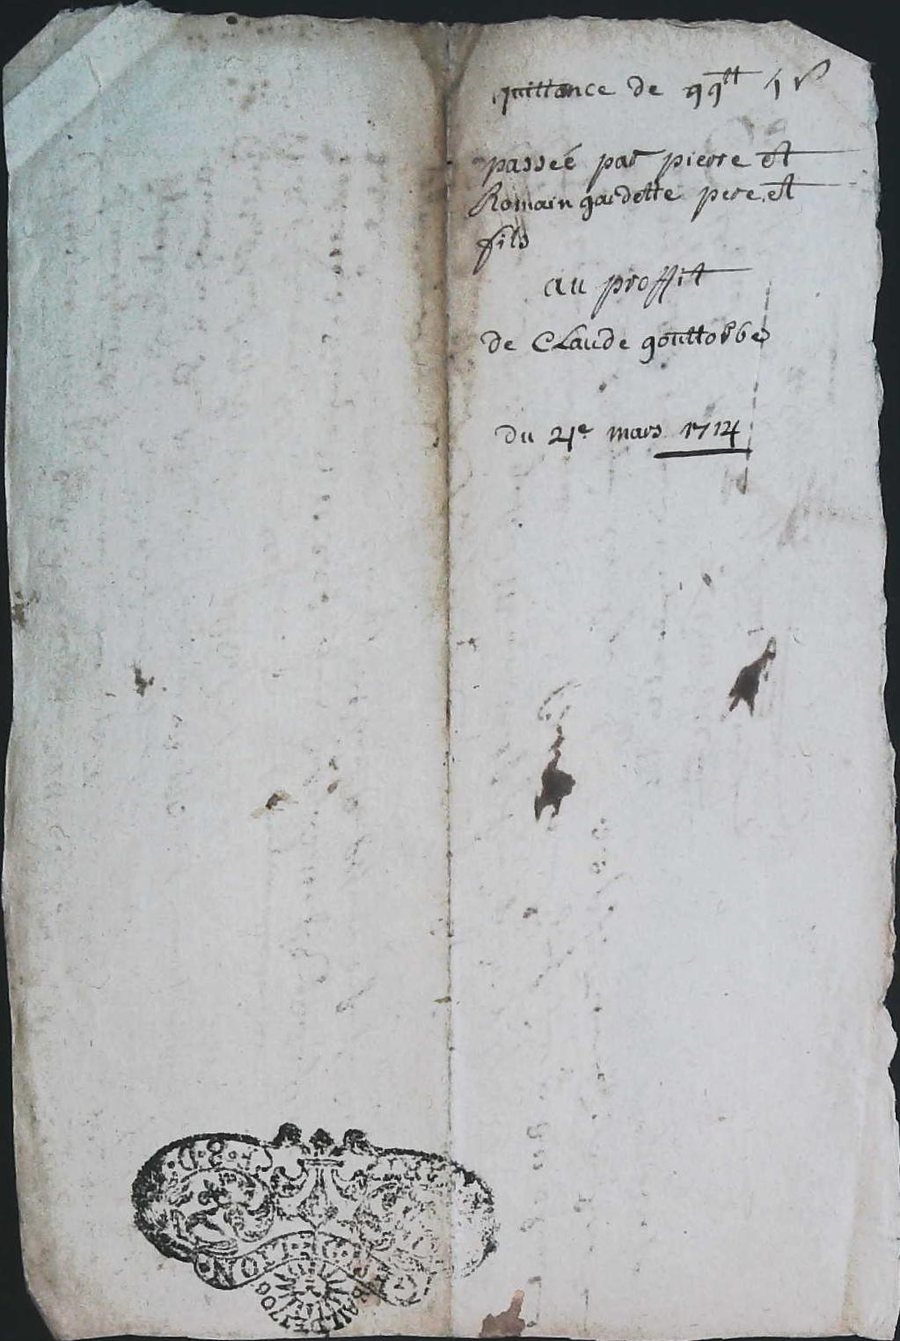 quittance de 99tt 1 s
passeé par pierre et
Romain gardette pere et
fils
au proffit
de CLaude gouttorbe
du 21e mars 1714
8·D·
MOY·